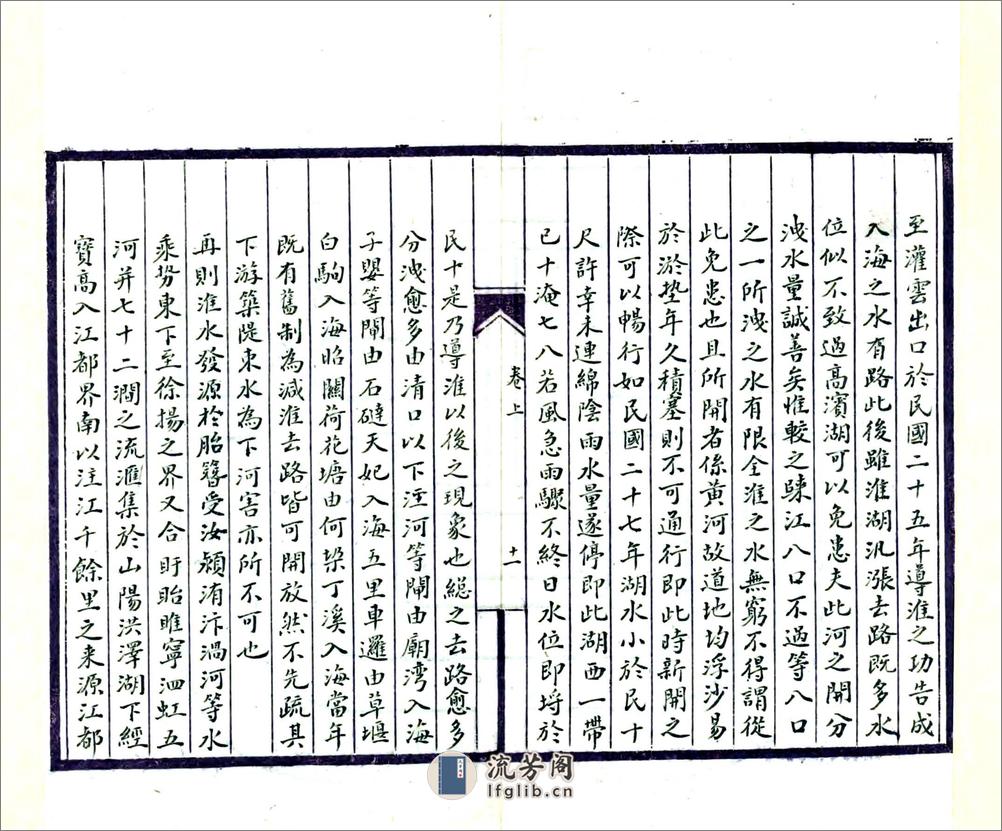 至灌雲出口於民國二十五年導淮之功告成
入海之水有路此後雖淮湖汎漲去路既多水
位似不致過高濱湖可以免患夫此河之開分
洩水量誠善矣惟較之歸江八口不過等八口
之一所洩之水有限全淮之水無窮不得謂從
此免患也且所開者係黃河故道地均浮沙易
於淤墊年久積塞則不可通行即此時新開之
際可以暢行如民國二十七年湖水小於民十
尺許幸未連綿陰雨水量遂停即此湖西一帶
已十淹七八若風急雨驟不終日水位即埒於
卷上
十一
民十是乃導淮以後之現象也總之去路愈多
分洩愈多由清口以下涇河等閘由廟灣入海
子嬰等閘由石䃮天妃入海五里車邏由草堰
白駒入海昭關荷花塘由何垛丁溪入海當年
既有舊制為減淮去路皆可開放然不先疏其
下游築隄束水為下河害亦所不可也
再則淮水發源於胎簪受汝潁洧汴渦河等水
乘勢東下至徐揚之界又合盱眙睢寧泗虹五
河并七十二澗之流滙集於山陽洪澤湖下經
寶高入江都界南以注江千餘里之來源江都
流芳阁
lfglib.cn